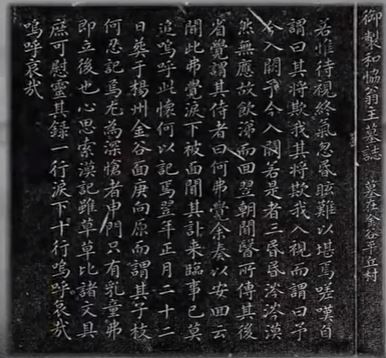 御製和協翁主墓誌 墓在金谷平丘村
若惟待視終氣忽昏眩難以堪焉嗟嘆自
謂曰其將欺我其將欺我入視而謂曰予
今入闕予今入闕若是者三昏昏涔涔漠
然無應故飮涕而回翌朝聞醫所傳其後
省覺謂其侍者曰何弗覺余奏以安回云
聞此弗覺淚下被面聞其訃来臨事已莫
追嗚呼此懷何以記焉翌年正月二十二
日葬于楊州金谷面庚向原而謂其子枝
何忍記焉尤爲深愴者申門只有乳童弗
即立後也心思索漠記雖草草比諸文具
庶可慰靈其錄一行淚下十行嗚呼哀哉
嗚呼哀哉